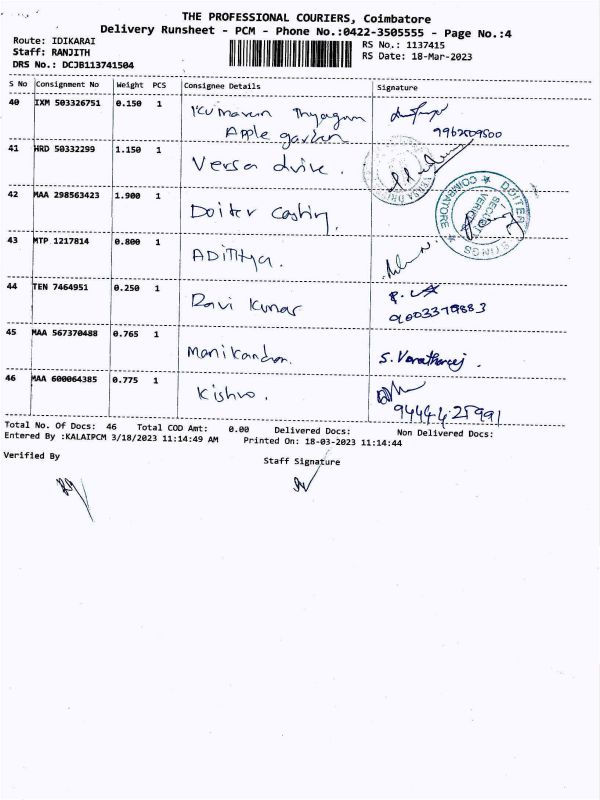 THE PROFESSIONAL COURIERS, Coimbatore
Delivery Runsheet - PCM - Phone No.:0422-3505555 - Page No.:4
Route: IDIKARAI
RS No.: 1137415
Staff: RANJITH
RS Date: 18-Mar-2023
DRS No.: DCJB113741504
S No Consignment No Weight PCS Consignee Details Signature
40 IXM 503326751 0.150 1 Kumaran Thyagun
Apple garden
9962509500
41 HRD 50332299 1.150 1 Versa drive.
VERSA DRI
42 MAA 298563423 1.900 1 Doiter Casting.
DOITER STINGS COIMBATORE
SECURITY
43 MTP 1217814 0.800 1 Adithya.
44 TEN 7464951 0.250 1 Ravi Kumar
9003379883
45 MAA 567370488 0.765 1 Manikandan. S. Varatharaj.
46 MAA 600064385 0.775 1 Kishro.
9444425991
Total No. Of Docs: 46 Total COD Amt: 0.00 Delivered Docs: Non Delivered Docs:
Entered By :KALAIPCM 3/18/2023 11:14:49 AM Printed On: 18-03-2023 11:14:44
Verified By
Staff Signature